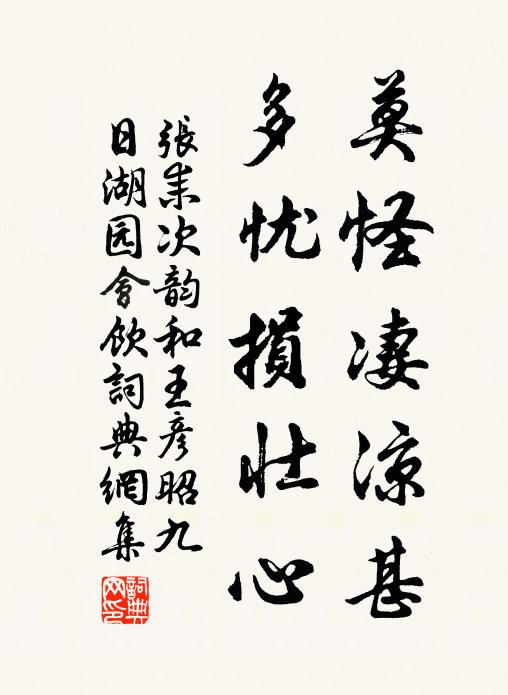 莫怪凄凉甚
多忧損壮心
張耒次韵和王彦昭九
日湖园會飲詞典網集
詞典
网印